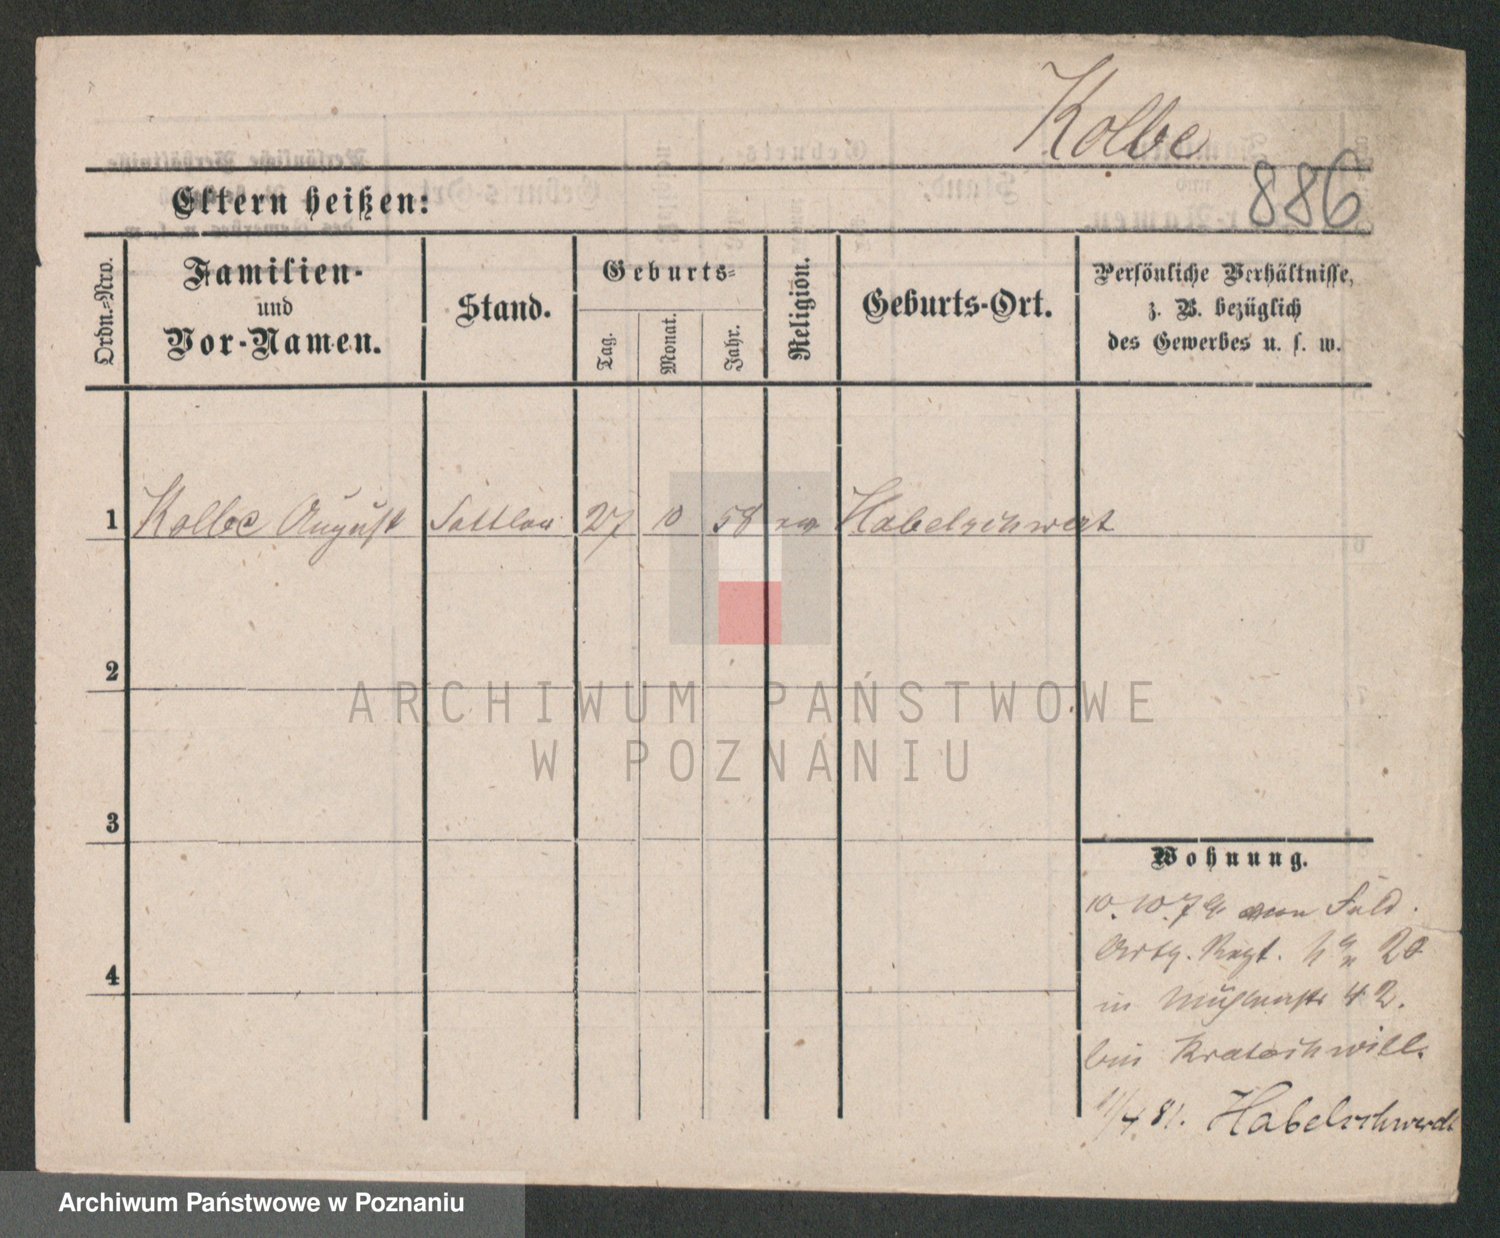 Kolbe
886
Eltern heißen:
Ordn.-Nro.
Familien-
und
Vor-Namen.
Stand.
Geburts-
Tag.
Monat.
Jahr.
Religion.
Geburts-Ort.
Persönliche Verhältnisse,
z. B. bezüglich
des Gewerbes u. s. w.
1 Kolbe August Sattler 27 10 58 Habelschwert
2
3
4
Wohnung.
10. 10. 79 vom Feld.
Artg. Regt. 20
in Mühlenstr 42.
bei Kratochwill.
11/4 81. Habelschwerdt
ARCHIWUM PAŃSTWOWE
W POZNANIU
Archiwum Państwowe w Poznaniu